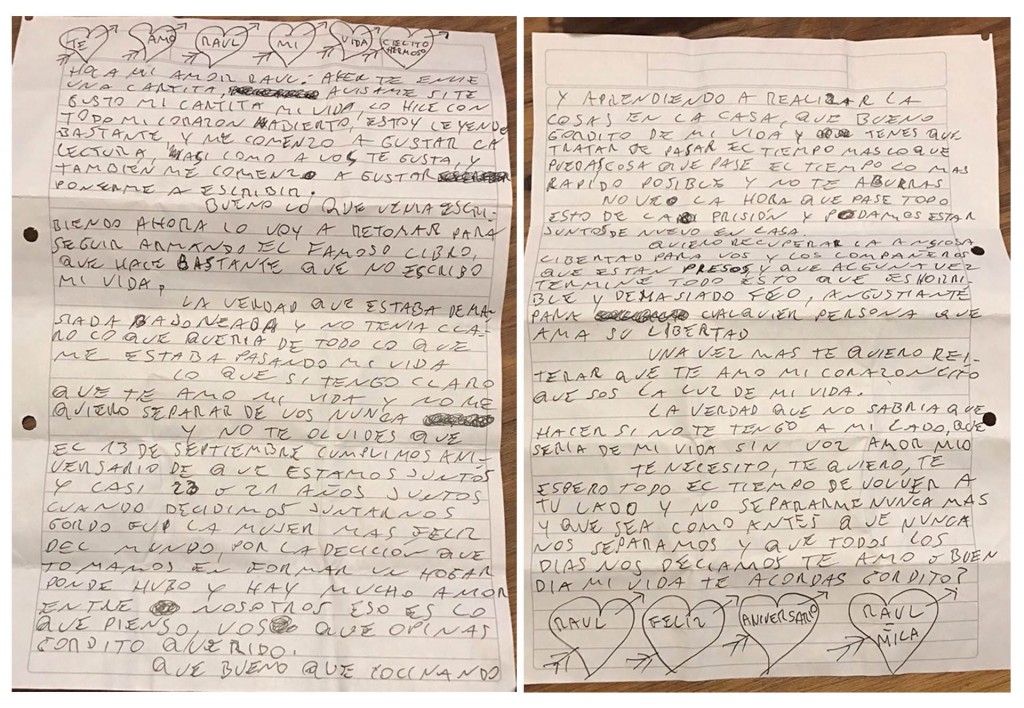 TE AMO RAUL MI VIDA CIELITO HERMOSO
HOLA MI AMOR RAUL: AYER TE ENVIE
UNA CARTITA, AVISAME SI TE
GUSTO MI CARTITA MI VIDA, LO HICE CON
TODO MI CORAZON ABIERTO, ESTOY LEYENDO
BASTANTE, Y ME COMENZO A GUSTAR LA
LECTURA, ASI COMO A VOS TE GUSTA, Y
TAMBIEN ME COMENZO A GUSTAR
PONERME A ESCRIBIR.
BUENO LO QUE VENIA ESCRI-
BIENDO AHORA LO VOY A RETOMAR PARA
SEGUIR ARMANDO EL FAMOSO LIBRO,
QUE HACE BASTANTE QUE NO ESCRIBO
MI VIDA,
LA VERDAD QUE ESTABA DEMA-
SIADA BAJONEADA Y NO TENIA CLA-
RO LO QUE QUERIA DE TODO LO QUE
ME ESTABA PASANDO MI VIDA
LO QUE SI TENGO CLARO
QUE TE AMO MI VIDA Y NO ME
QUIERO SEPARAR DE VOS NUNCA
Y NO TE OLVIDES QUE
EL 13 DE SEPTIEMBRE CUMPLIMOS ANI-
VERSARIO DE QUE ESTAMOS JUNTOS
Y CASI O 21 AÑOS JUNTOS
CUANDO DECIDIMOS JUNTARNOS
GORDO FUI LA MUJER MAS FELIZ
DEL MUNDO, POR LA DECICION QUE
TOMAMOS EN FORMAR UN HOGAR
DONDE HUBO Y HAY MUCHO AMOR
ENTRE NOSOTROS ESO ES LO
QUE PIENSO, VOS QUE OPINAS
GORDITO QUERIDO.
QUE BUENO QUE COCINANDO
Y APRENDIENDO A REALIZAR LA
COSAS EN LA CASA, QUE BUENO
GORDITO DE MI VIDA Y TENES QUE
TRATAR DE PASAR EL TIEMPO MAS LO QUE
PUEDAS COSA QUE PASE EL TIEMPO LO MAS
RAPIDO POSIBLE Y NO TE ABURRAS
NO VEO LA HORA QUE PASE TODO
ESTO DE LA PRISIÓN Y PODAMOS ESTAR
JUNTOS DE NUEVO EN CASA.
QUIERO RECUPERAR LA ANSIOSA
LIBERTAD PARA VOS Y LOS COMPAÑEROS
QUE ESTAN PRESOS, Y QUE ALGUNA VEZ
TERMINE TODO ESTO QUE ES HORRI-
BLE Y DEMASIADO FEO, ANGUSTIANTE
PARA CUALQUIER PERSONA QUE
AMA SU LIBERTAD
UNA VEZ MAS TE QUIERO REI-
TERAR QUE TE AMO MI CORAZONCITO
QUE SOS LA LUZ DE MI VIDA.
LA VERDAD QUE NO SABRIA QUE
HACER SI NO TE TENGO A MI LADO, QUE
SERIA DE MI VIDA SIN VOZ AMOR MIO
TE NECESITO, TE QUIERO, TE
ESPERO TODO EL TIEMPO DE VOLVER A
TU LADO Y NO SEPARARME NUNCA MAS
Y QUE SEA COMO ANTES QUE NUNCA
NOS SEPARAMOS Y QUE TODOS LOS
DIAS NOS DECIAMOS TE AMO O BUEN
DIA MI VIDA TE ACORDAS GORDITO?
RAUL FELIZ ANIVERSARIO RAUL = MILA